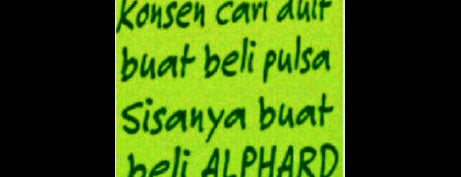 Konsen cari duit
buat beli pulsa
Sisanya buat
beli ALPHARD